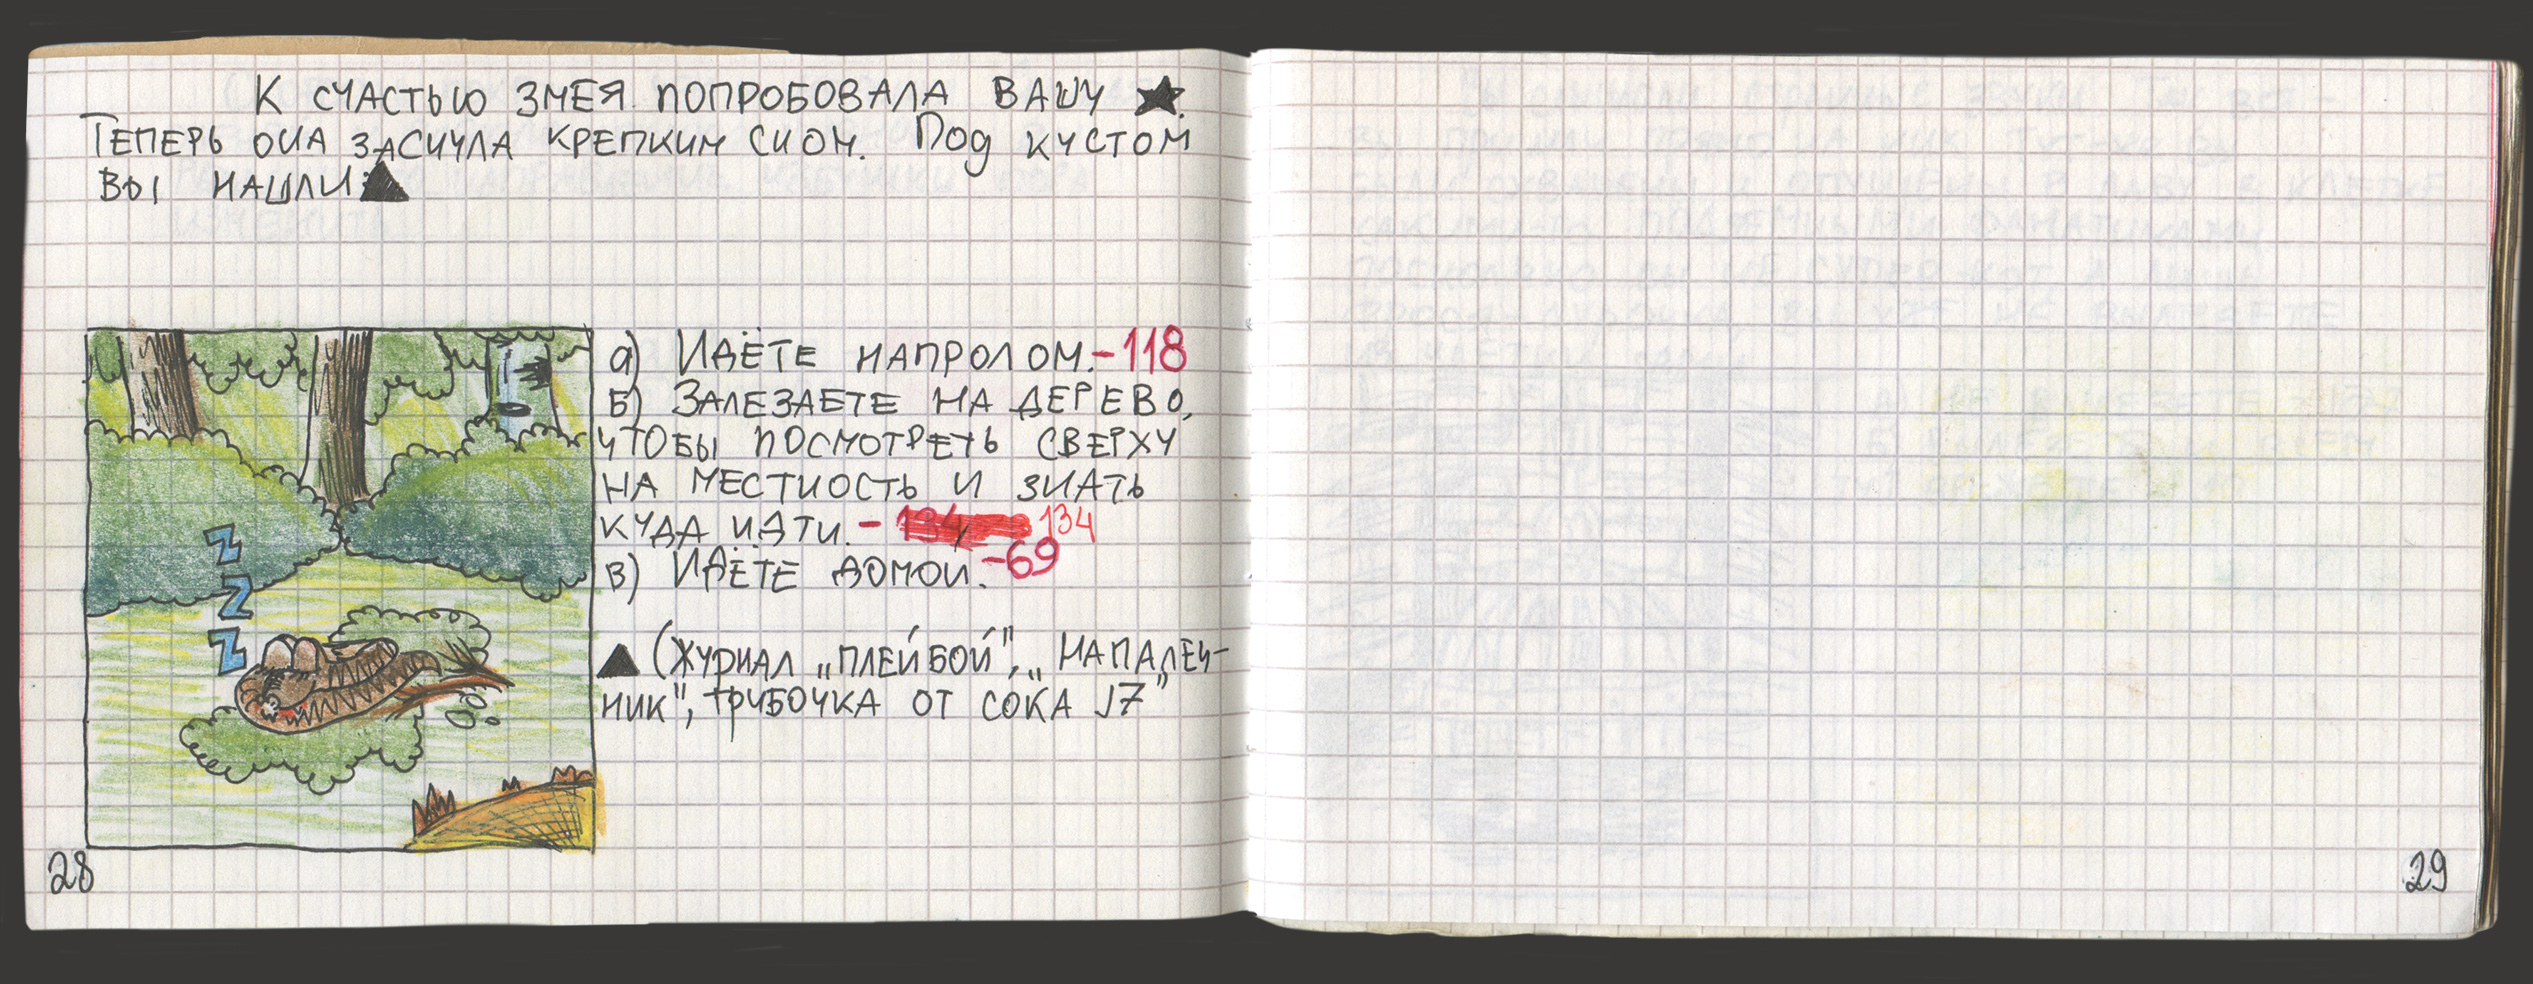 К СЧАСТЬЮ ЗМЕЯ ПОПРОБОВАЛА ВАШУ ★.
ТЕПЕРЬ ОНА ЗАСНУЛА КРЕПКИМ СНОМ. ПОД КУСТОМ
ВЫ НАШЛИ: ▲
а) ИДЁТЕ НАПРОЛОМ.-118
Б) ЗАЛЕЗАЕТЕ НА ДЕРЕВО,
ЧТОБЫ ПОСМОТРЕТЬ СВЕРХУ
НА МЕСТНОСТЬ И ЗНАТЬ
КУДА ИДТИ.- 134
В) ИДЁТЕ ДОМОЙ.-69
▲ (ЖУРНАЛ „ПЛЕЙБОЙ", „НАПАЛЕЧ-
НИК", ТРУБОЧКА ОТ СОКА J7"
Z
Z
Z
28
29